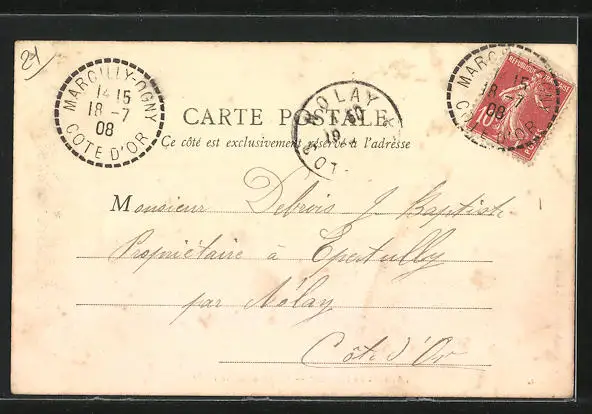 21
MARCILLY-OGNY
14 15
18 -7
08
COTE D'OR
NOLAY
MARCILLY
15
18 -7
08
COTE D'OR
REPUBLIQUE FRANÇAISE
10
CARTE POSTALE
Ce côté est exclusivement réservé à l'adresse
Monsieur Debrois J. Baptiste
Propriétaire à Epertully
par Nolay
Côte d'Or